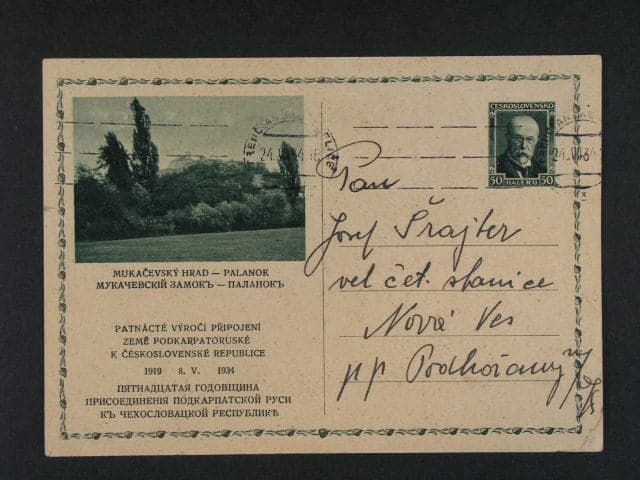 MUKAČEVSKÝ HRAD — PALANOK
МУКАЧЕВСКІЙ ЗАМОКЪ — ПАЛАНОКЪ
PATNÁCTÉ VÝROČÍ PŘIPOJENÍ
ZEMĚ PODKARPATORUSKÉ
K ČESKOSLOVENSKÉ REPUBLICE
1919 8. V. 1934
ПЯТНАДЦАТАЯ ГОДОВЩИНА
ПРИСОЕДИНЕНІЯ ПОДКАРПАТСКОЙ РУСИ
КЪ ЧЕХОСЛОВАЦКОЙ РЕСПУБЛИКѢ
ČESKOSLOVENSKO
50 HALEŘŮ 50
Pan
Josef Šrajter
vel čet. stanice
Nová Ves
pp Podhořany